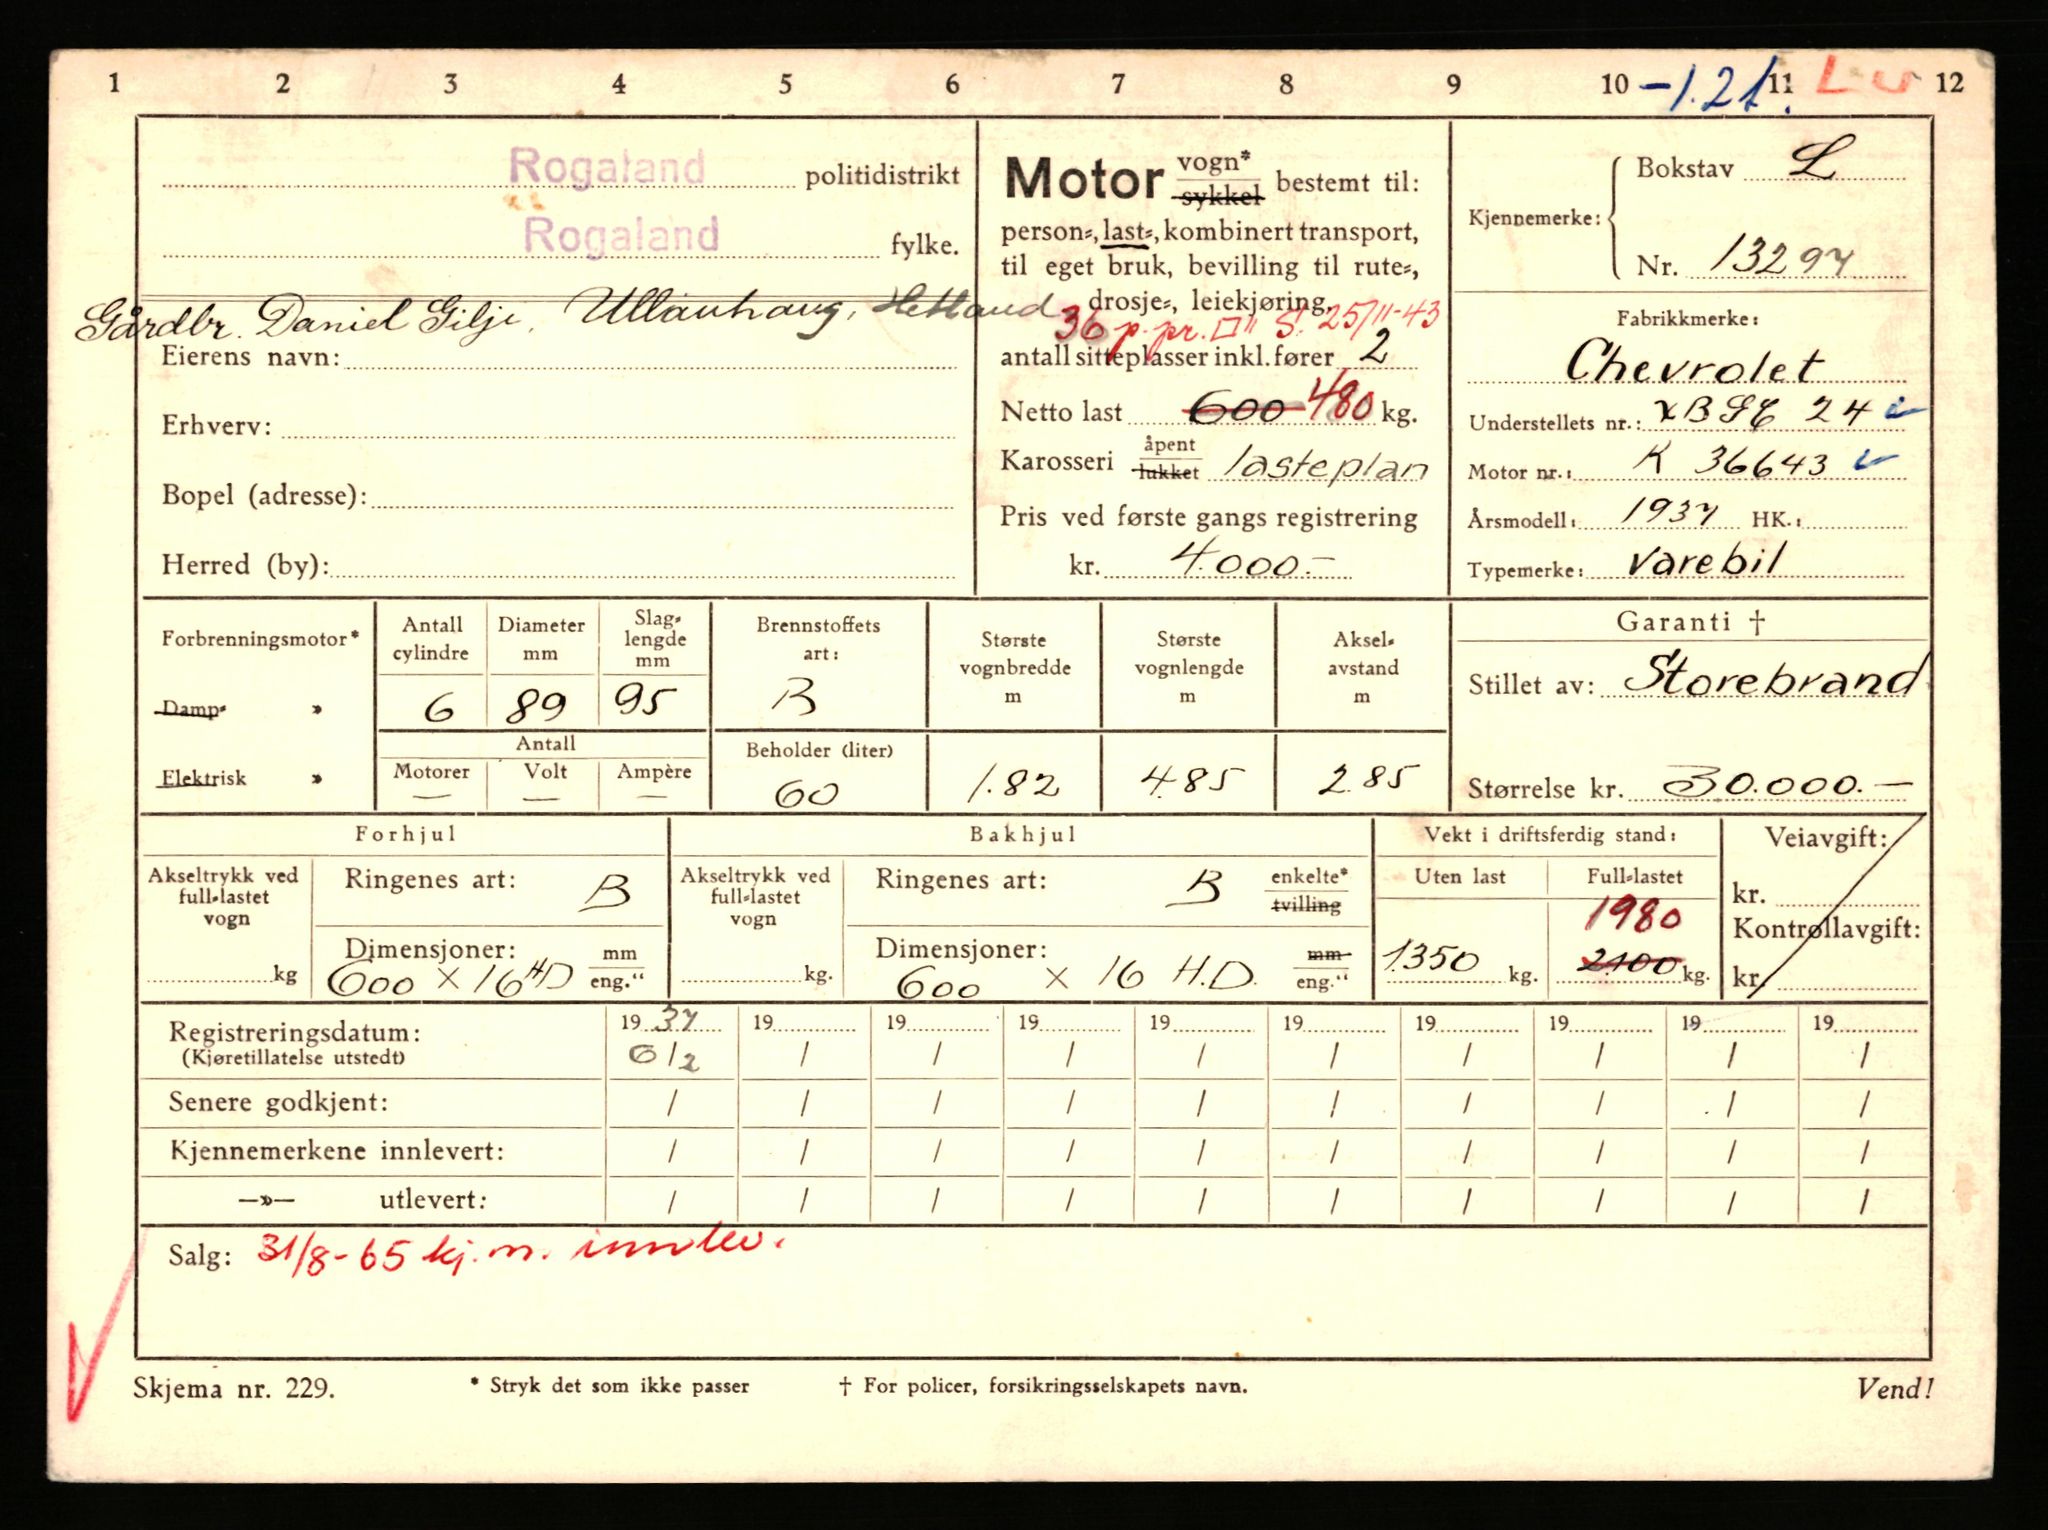 1 2 3 4 5 6 7 8 9 10 -1.21. 11 12
Rogaland politidistrikt
Rogaland fylke.
Gårdbr. Daniel Gilje, Ullauhaug, Hetland
Eierens navn:
Erhverv:
Bopel (adresse):
Herred (by):
Motor vogn* sykkel bestemt til:
person-, last-, kombinert transport,
til eget bruk, bevilling til rute-,
drosje-, leiekjøring,
36 p. pr. □" S. 25/11-43
antall sitteplasser inkl. fører 2
Netto last 600 480 kg.
Karosseri åpent lukket lasteplan
Pris ved første gangs registrering
kr. 4.000.-
Kjennemerke:
Bokstav L
Nr. 13297
Fabrikkmerke:
Chevrolet
Understellets nr.: xBGE 24
Motor nr.: K 36643
Årsmodell: 1937 HK.:
Typemerke: varebil
Forbrenningsmotor*
Damp- »
Elektrisk »
Antall cylindre
6
Diameter mm
89
Slag-
lengde
mm
95
Antall
Motorer Volt Ampère
— — —
Brennstoffets
art:
B
Beholder (liter)
60
Største
vognbredde
m
1.82
Største
vognlengde
m
4.85
Aksel-
avstand
m
2.85
Garanti †
Stillet av: Storebrand
Størrelse kr. 30.000.—
Forhjul
Akseltrykk ved
full-lastet
vogn
kg
Ringenes art: B
Dimensjoner: mm
600 x 16 HD eng."
Bakhjul
Akseltrykk ved
full-lastet
vogn
kg.
Ringenes art: B enkelte* tvilling
Dimensjoner: mm
600 x 16 H.D. eng."
Vekt i driftsferdig stand:
Uten last Full-lastet
1980
1350 kg. 2100 kg.
Veiavgift:
kr.
Kontrollavgift:
kr.
Registreringsdatum: 1937 19 19 19 19 19 19 19 19 19
(Kjøretillatelse utstedt) 6/2 / / / / / / / / /
Senere godkjent: / / / / / / / / / /
Kjennemerkene innlevert: / / / / / / / / / /
—»— utlevert: / / / / / / / / / /
Salg: 31/8-65 kj.m. innlev.
Skjema nr. 229. * Stryk det som ikke passer † For policer, forsikringsselskapets navn. Vend!